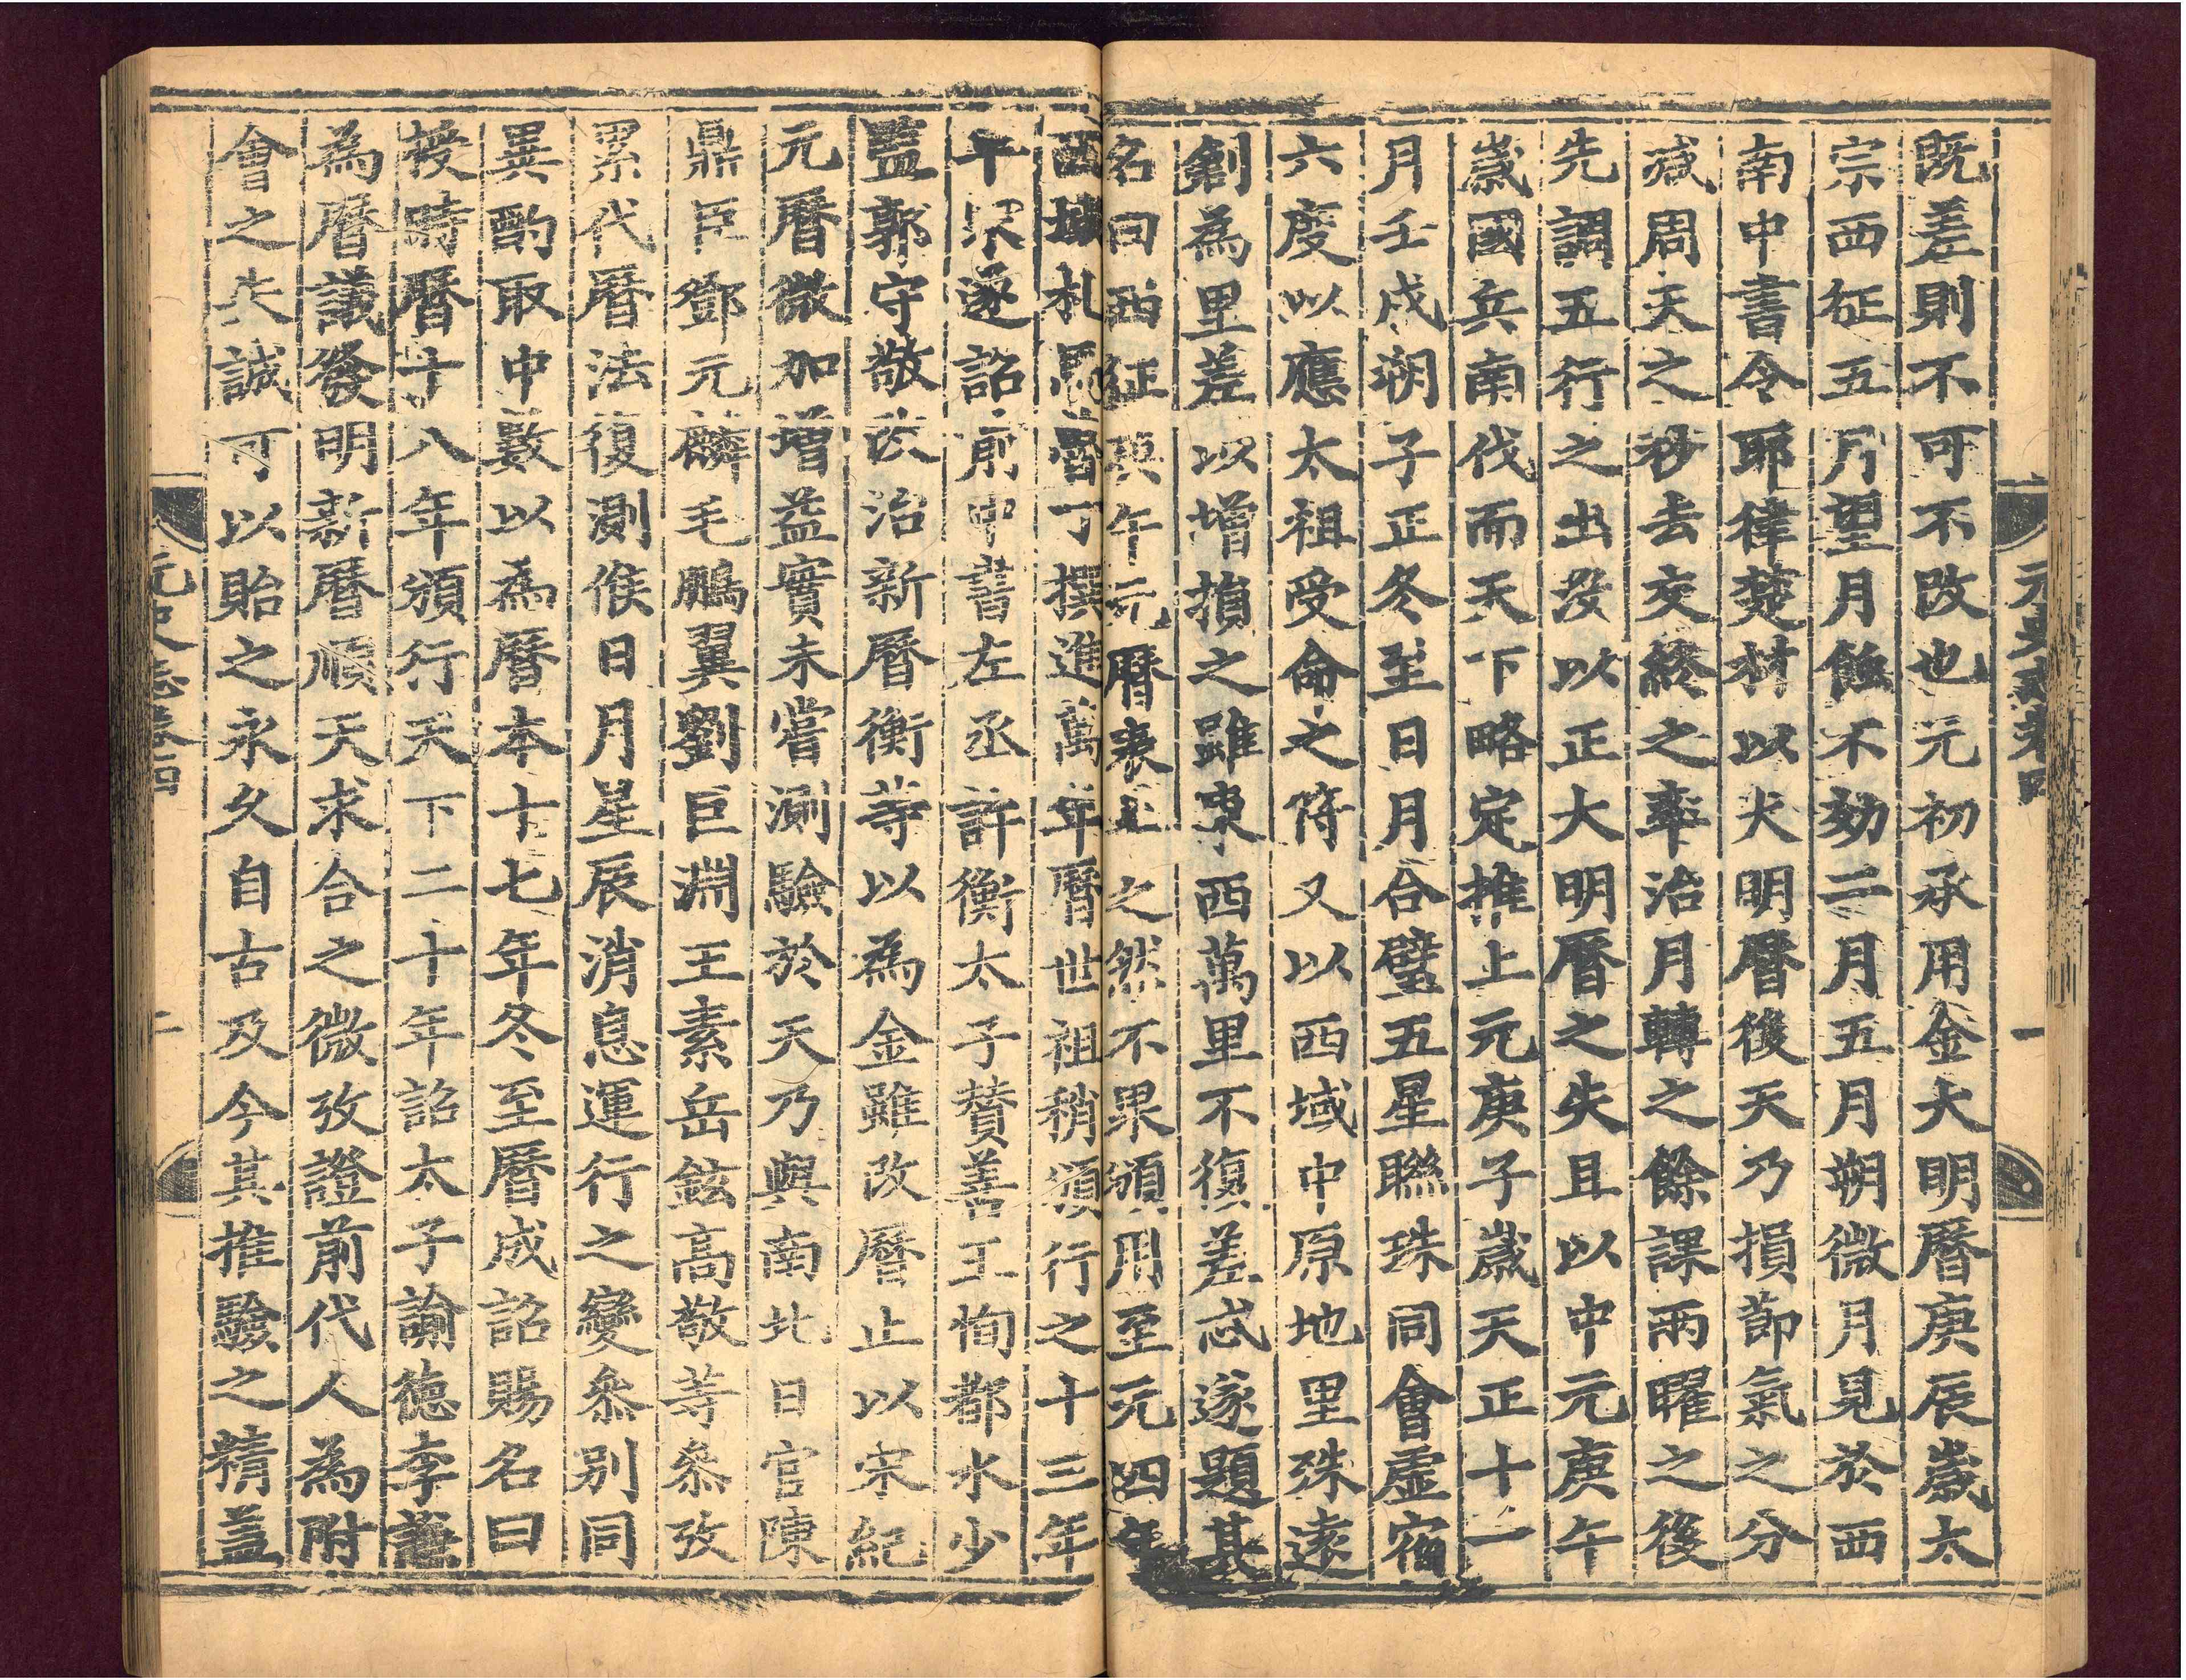 元史志卷四
一
既差則不可不改也元初承用金大明曆庚辰歲太
宗西征五月望月蝕不効二月五月朔微月見於西
南中書令耶律楚材以大明曆後天乃損節氣之分
減周天之秒去交終之率治月轉之餘課兩曜之後
先調五行之出沒以正大明曆之失且以中元庚午
歲國兵南伐而天下略定推上元庚子歲天正十一
月壬戌朔子正冬至日月合璧五星聯珠同會虛宿
六度以應太祖受命之符又以西域中原地里殊遠
創為里差以增損之雖東西萬里不復差忒遂題其
名曰西征庚午元曆表上之然不果頒用至元四年
西域札馬魯丁撰進萬年曆世祖稍頒行之十三年
平宋遂詔前中書左丞許衡太子贊善王恂都水少
監郭守敬改治新曆衡等以為金雖改曆止以宋紀
元曆微加增益實未嘗測驗於天乃與南北日官陳
鼎臣鄧元麟毛鵬翼劉巨淵王素岳鉉高敬等參攷
累代曆法復測候日月星辰消息運行之變參別同
異酌取中數以為曆本十七年冬至曆成詔賜名曰
授時曆十八年頒行天下二十年詔太子諭德李謙
為曆議發明新曆順天求合之微攷證前代人為附
會之失誠可以貽之永久自古及今其推驗之精蓋
元史志卷四
二